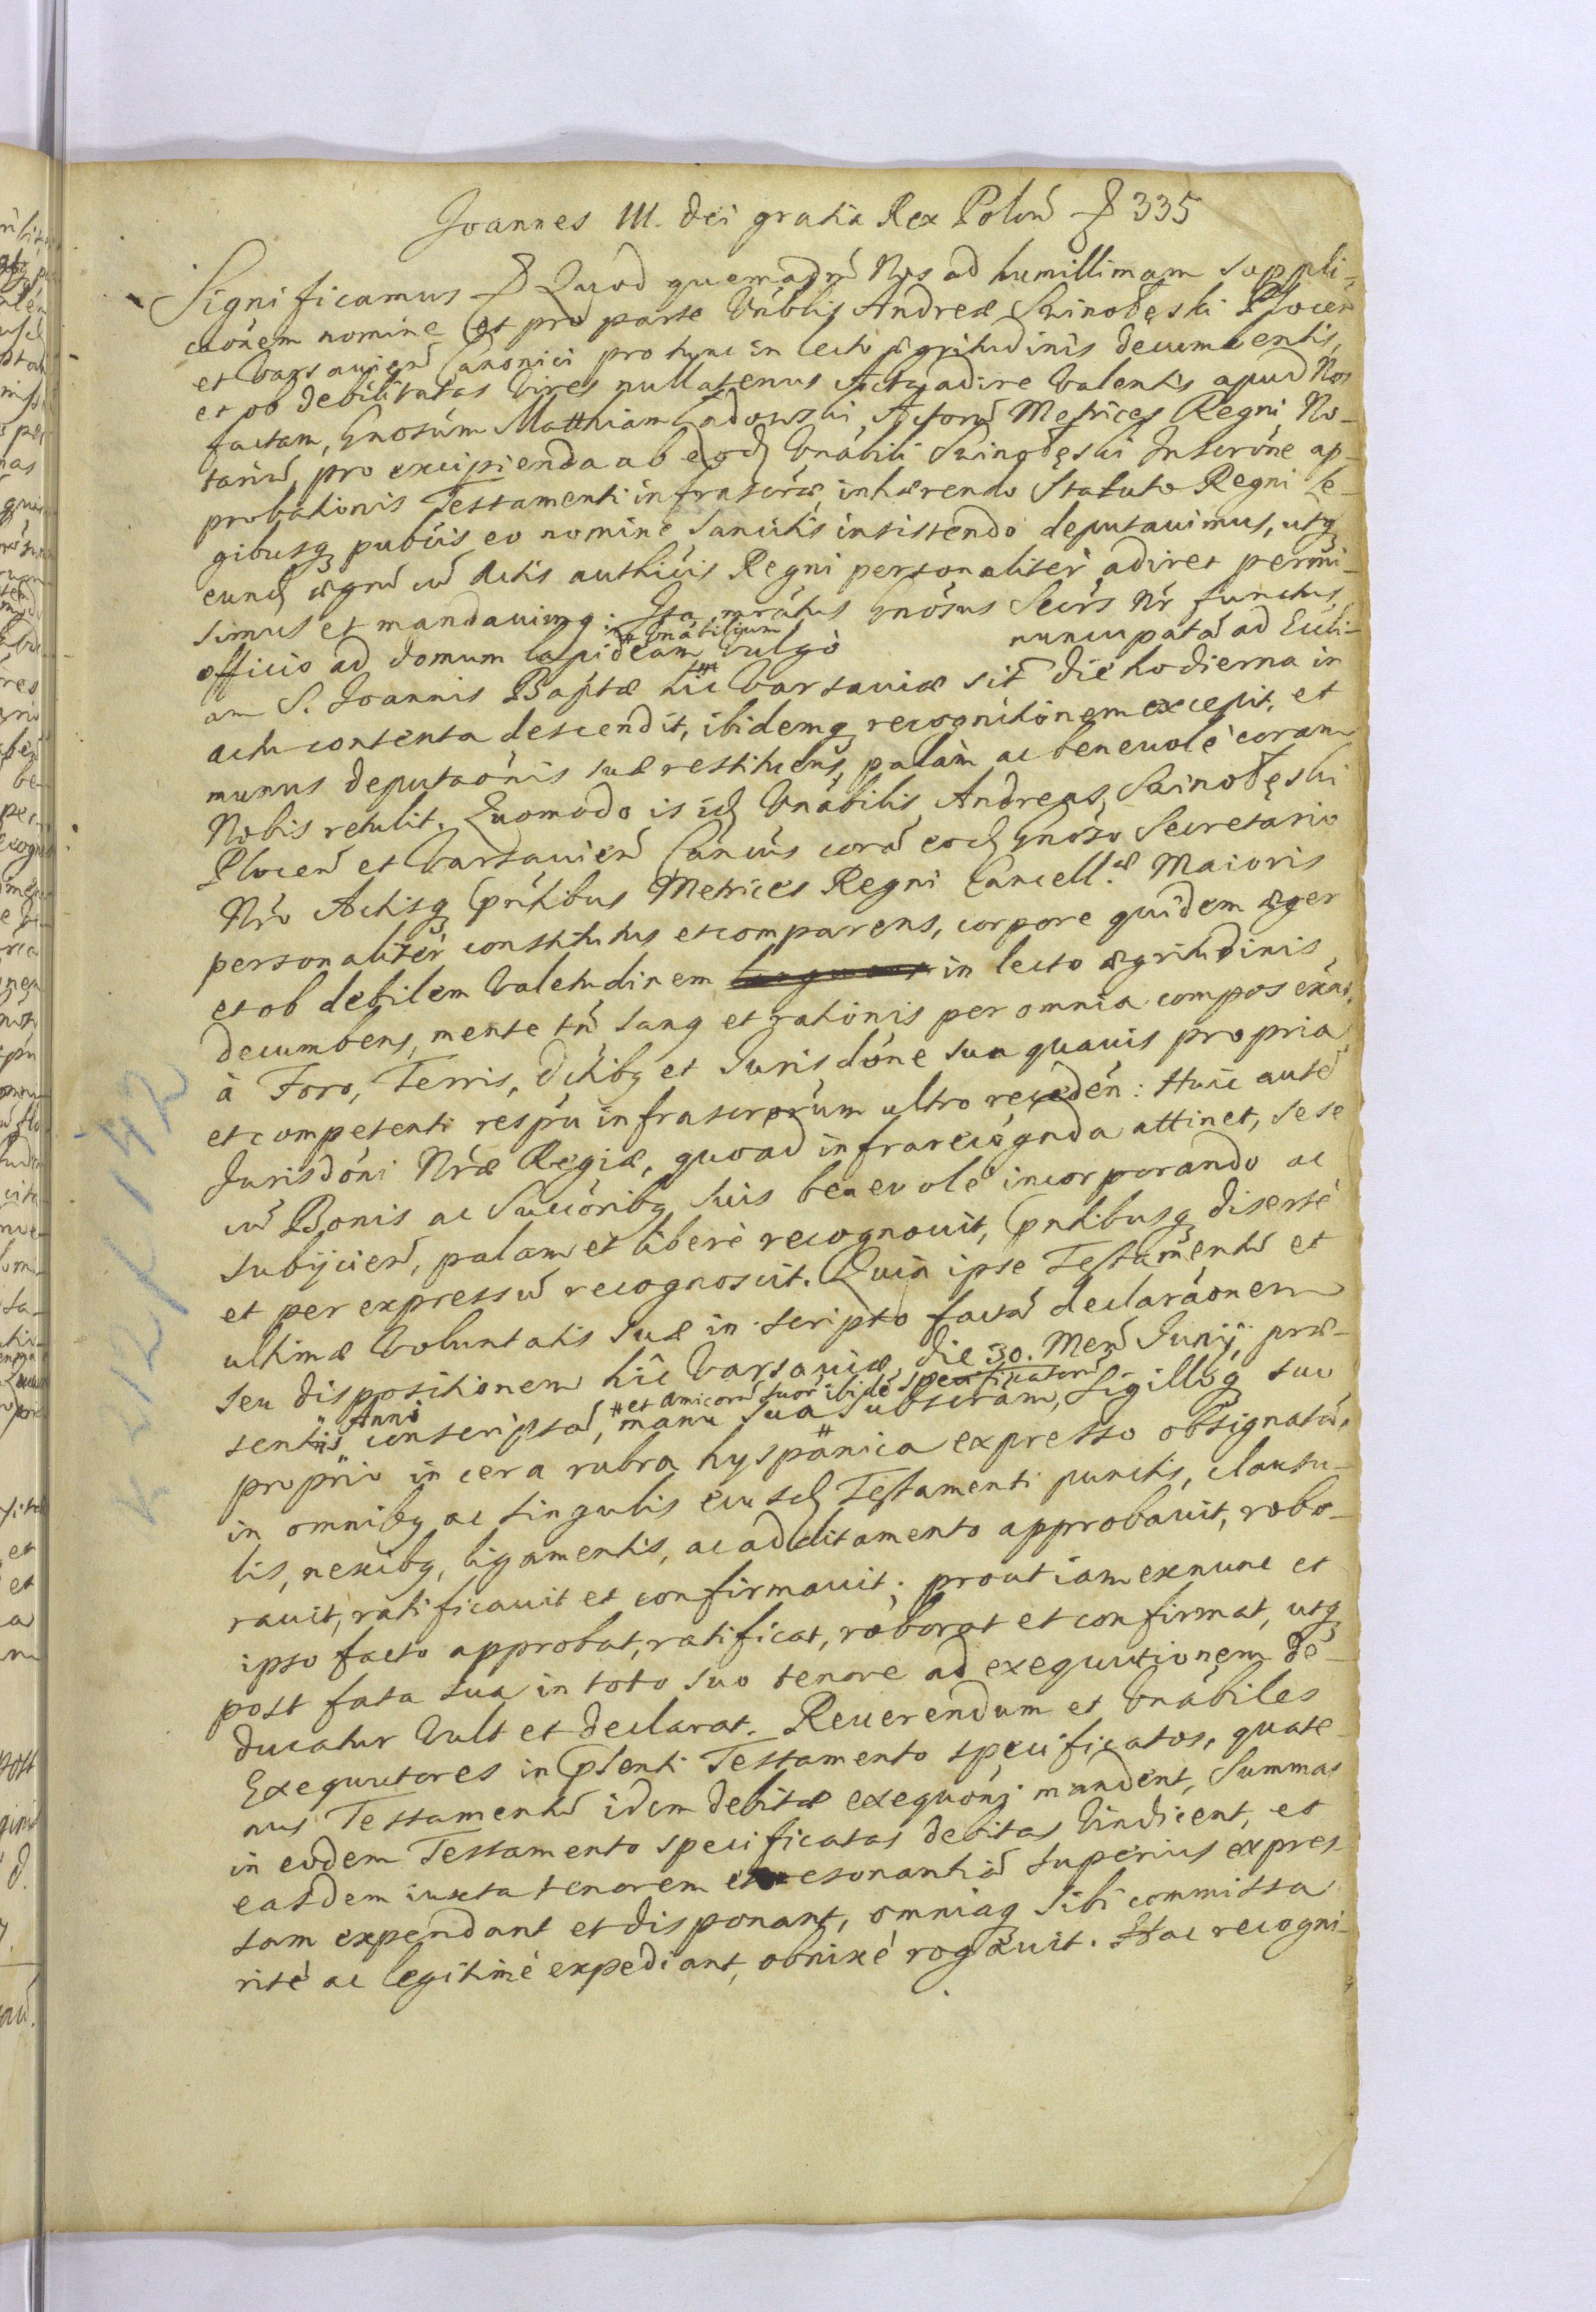 Joannes III. Dei gratia Rex Poloń 335
Significamus Quod quemadm̃ Nos ad humillimam suppli-
caõnem nomine et pro parte Vnãblis Andreæ Swinołęski Plocen̄
et Varsauien̄ Canonici pro tunc in lecto ægritudinis decumbentis,
et ob debilitatas vires nullatenus Acta adire valentis apud Nos
factam, Gnosũm Matthiam Ladowski, Actorũ Metrices Regni No-
tariũ, pro excipienda ab eod Vnãbili Swinołęski Inscrõne ap-
probationis Testamenti infrascr̃æ, inhærendo Statuto Regni Le-
gibusq publ̃is eo nomine sancitis insistendo deputauimus, utq
eund ægrũ cũ Actis authĩcis Regni personaliter adiret permi-
simus et mandauimq. Ita præfatus Gnõsus Secr̃s Nr̃ functus
# Vnãbilium
officio ad domum lapideam vulgò nuncupatã ad Eccli-
am S. Joannis Baptæ hîc Varsauiæ sit̃ die hodierna in
actu contenta descendit, ibidemq recognitionem excepit, et
munus deputaõnis suæ restituens, palàm ac beneuolè coram
Nobis retulit. Quomodo is id Vnãbilis Andreas Swinołęski
Plocen̄ et Varsauien̄ Canc̃us corã eod Gnõso Secretario
Nr̃o Actisq Pñtibus Metrices Regni Cancell.æ Maioris
personalitèr constitutus et comparens, corpore quidem æger
et ob debilem valetudinem in lecto ægritudinis
decumbens, mente tñ sanq et rationis per omnia compos exãs,
à Foro, Terris, Dctibq et Jurisdõne sua quauis propria
et competenti respũ infrascr̃orum ultro recedeñ: Huic autẽ
Jurisdõni Nr̃æ Regiæ, quoad infrarecõgnda attinet, sese
cũ Bonis ac Succõribq suis beneuolè incorporando ac
subijcien̄, palam et liberè recognouit, Pñtibusq disertè
et per expressũ recognoscit. Quia ipse Testamentũ et
ultimæ voluntatis suæ in scripto factã declarãonem
seu dispositionem hîc Varsauiæ, die 30. Men̄ Junij, præ-
# et amicorũ suor̃ ibidẽ specificatorũ
sentis Anni conscriptã, manu sua subscr̃am, Sigilloq suo
proprio in cera rubra hyspanica expresso obsignatã,
in omnibq ac singulis eiusd Testamenti punctis, clausu-
lis, nexibq, ligamentis, ac additamento approbauit, robo-
rauit, ratificauit et confirmauit; prout iam exnunc et
ipso facto approbat, ratificat, roborat et confirmat, utq
post fata sua in toto suo tenore ad exequutionem de-
ducatur vult et declarat. Reuerendum et Vnãbiles
Exequutores in Psenti Testamento specificatos, quate-
nus Testamentũ idem debitæ exequõnj mandent, Summas
in eodem Testamento specificatas debitas vindicent, et
easdem iuxta tenorem et esonantiã superius expres-
sam expendant et disponant, omniaq sibi commissa
ritè ac legitimè expediant, obnixè rogauit. Hac recogni-